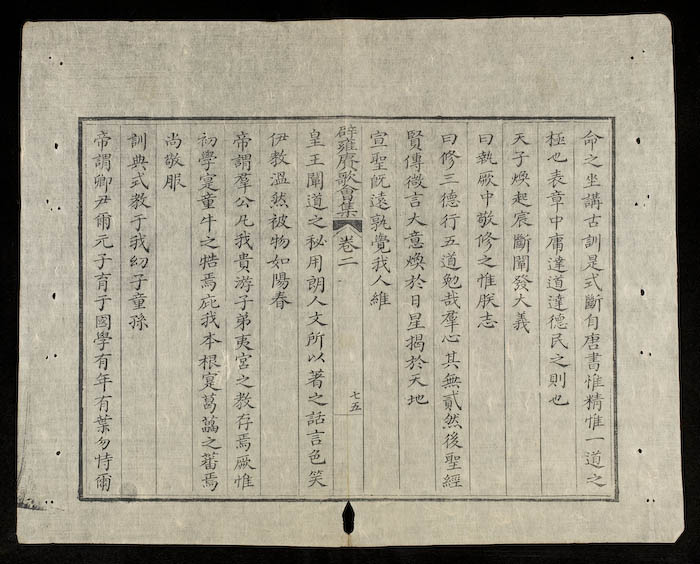 命之坐講古訓是式斷自唐書惟精惟一道之
極也表章中庸達道達德民之則也
天子煥起宸斷闡發大義
曰執厥中敬修之惟朕志
曰修三德行五道勉哉羣心其無貳然後聖經
賢傳微言大意煥於日星揭於天地
宣聖旣遠孰覺我人維
辟雍賡歌會集 卷二
七五
皇王闡道之秘用朗人文所以著之話言色笑
伊教溫然被物如陽春
帝謂羣公凡我貴游子弟夷宮之教存焉厥惟
初學寔童牛之牿焉庇我本根寔葛藟之蕃焉
尚敬服
訓典式教于我幼子童孫
帝謂卿尹爾元子育于國學有年有葉勿恃爾